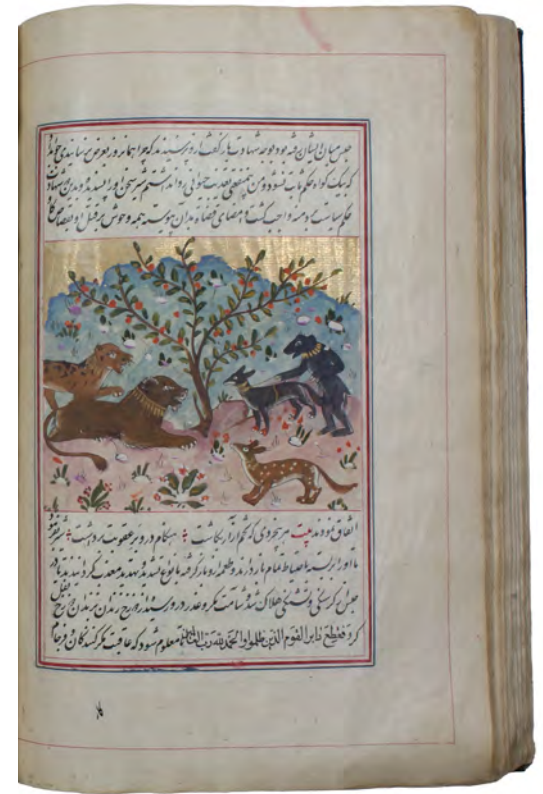 میان ایشان رفته بود بوجه شهادت باز گفت ازو پرسیدند که چرا همانروز بعرض نرسانیدی جواب داد
که بیک کواه حکم ثابت نشود و من بی منفعتی تعذیب حیوانی روا نداشتم شیر سخن او را پسندید و بدین شهادت
حکم سیاست بر دمنه واجب کشت و امضای قضاة بدان پیوسته همه وحوش بر قتل او بقصاص کاو
اتفاق نمودند بیت هر که تخم آزار کاشت هنکام درو بر عقوبت برداشت شیر بفرمود
تا او را بربسته باحتیاط تمام باز دارند و طعمه ازو باز کرفته بانواع تهدید معذب کردانیدند تا در
حبس از کرسنکی و تشنکی هلاک شد و شامت مکر و غدر درو رسید و از دوزخ زندان بزندان دوزخ نقل
کرد فقطع دابر القوم الذین ظلموا والحمد لله رب العالمین تا معلوم شود که عاقبت مکر کنندکان و فرجام